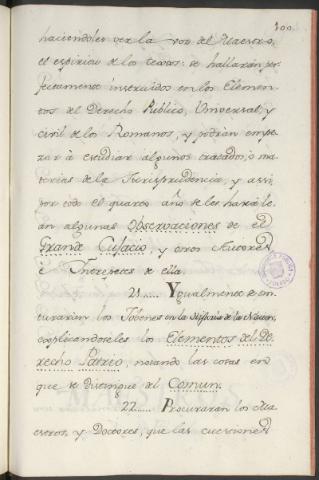 300
haciendoles ver la voz del Maestro,
el espiritu de los textos: se hallarán per-
fectamente instruidos en los Elemen-
tos del Derecho Publico, Universal, y
civil de los Romanos, y podrán empe-
zar à estudiar algunos tratados, ò ma-
terias de la Jurisprudencia, y assi,
por todo el quarto año se les hará le-
er algunas Observaciones de el
Grande Cujacio, y otros Autores
è Interpetes de ella.
21..... Ygualmente se ins-
truràn los Jobenes en la Historia de la Nacion,
explicandoseles los Elementos del De-
recho Patrio, notando las cosas en
que se distingue del Comun.
22..... Procuraràn los Ma-
estros, y Doctores, que las cuestiones